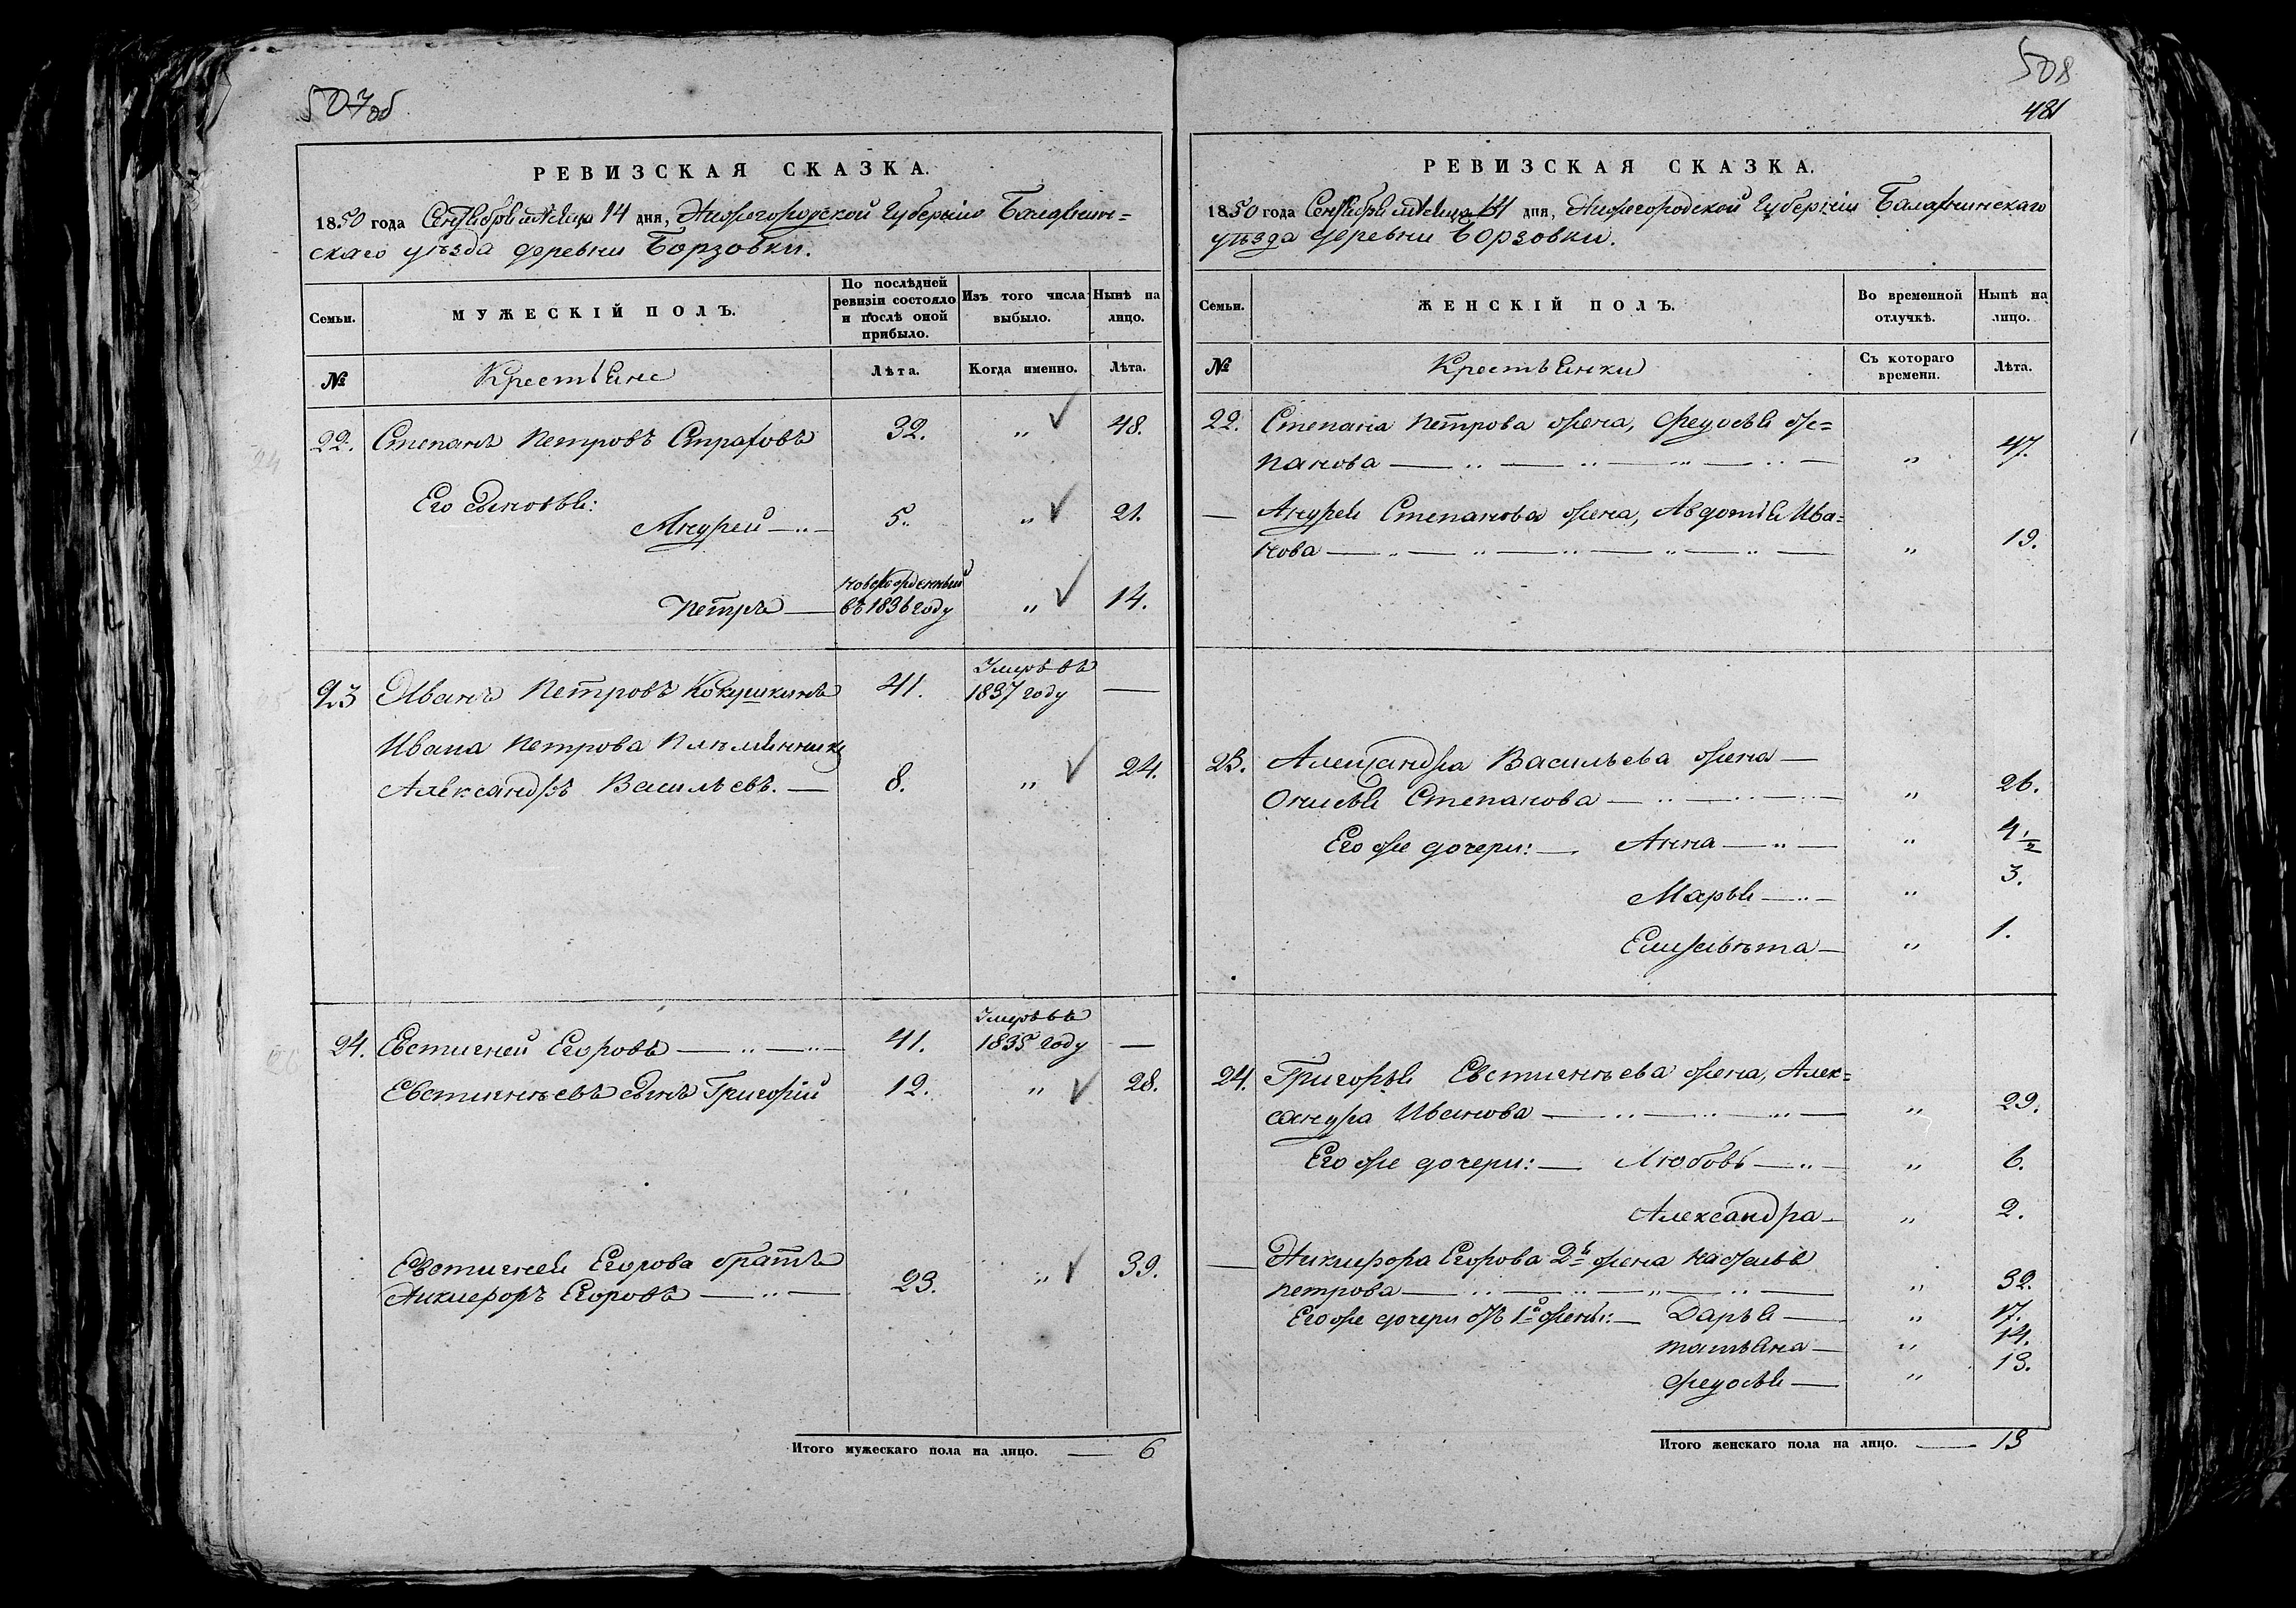 507об
РЕВИЗСКАЯ СКАЗКА.
1850 года Сентября мѣсяца 14 дня, Нижегородской Губерніи Балахнин=
скаго уѣзда деревни Борзовки.
Семьи.
МУЖЕСКІЙ ПОЛЪ.
По послѣдней ревизіи состояло и послѣ оной прибыло.
Изъ того числа выбыло.
Нынѣ на лицо.
№
Крестьяне
Лѣта.
Когда именно.
Лѣта.
22. Степанъ Петровъ Страховъ 32. „ 48.
Его сыновья:
Андрей — 5. „ 21.
новорожденный
Петръ — въ 1836 году „ 14.
Умеръ въ
23 Иванъ Петровъ Кокушкинъ 41. 1837 году —
Ивана Петрова племянникъ
Александръ Васильевъ. — 8. „ 24.
Умеръ въ
24. Евстигней Егоровъ — 41. 1835 году —
Евстигнѣевъ сынъ Григорій 12. „ 28.
Евстигнея Егорова братъ
Никифоръ Егоровъ — 23. „ 39.
Итого мужескаго пола на лицо. — 6
508
481
РЕВИЗСКАЯ СКАЗКА.
1850 года Сентября мѣсяца 14 дня, Нижегородской Губерніи Балахнинскаго
уѣзда деревни Борзовки.
Семьи.
ЖЕНСКІЙ ПОЛЪ.
Во временной отлучкѣ.
Нынѣ на лицо.
№
Крестьянки
Съ котораго времени.
Лѣта.
22. Степана Петрова жена, Федосья
панова — „ 47.
— Андрея Степанова жена, Авдотья Ива=
нова — „ 19.
23. Александра Васильева жена —
Степанова — „ 26.
Его же дочери: — Анна — „ 4 1/2
Марья — „ 3.
Елизавѣта — „ 1.
24. Григорья Евстигнѣева жена, Алек=
сандра Иванова — „ 29.
Его же дочери: — Любовь — „ 6.
Александра — „ 2.
— Никифора Егорова 2я жена Настасья
Петрова — „ 32.
Его же дочери отъ 1й жены: — Дарья — „ 17.
Татьяна — „ 14.
Федосья — „ 13.
Итого женскаго пола на лицо. — 13